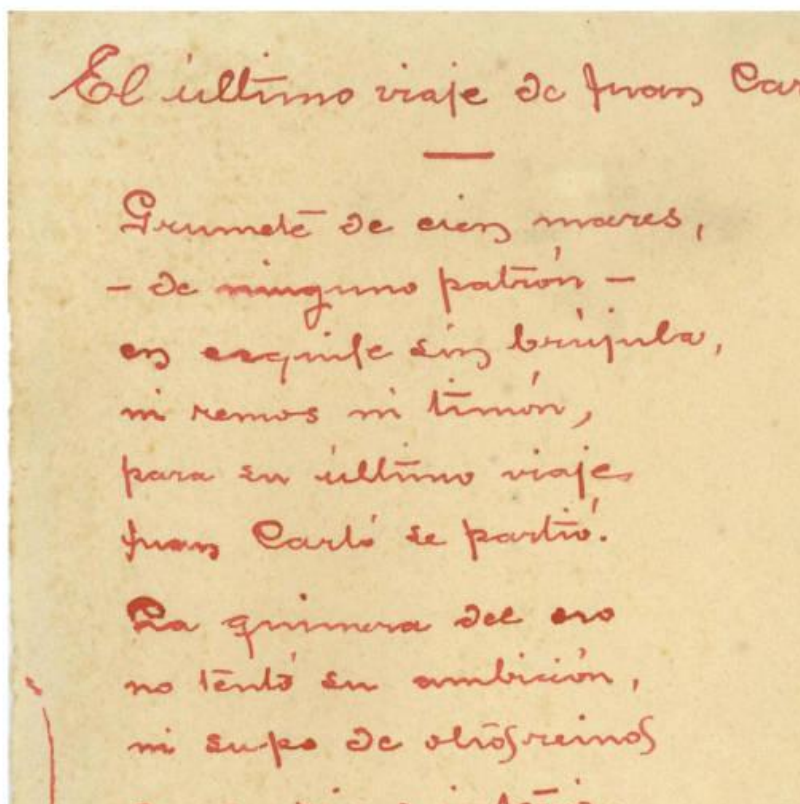 El último viaje de Juan Car
Grumete de cien mares,
- de ninguno patrón -
en esquife sin brújula,
ni remos ni timón,
para su último viaje
Juan Carló se partió.
La quimera del oro
no tentó su ambición,
ni supo de otros reinos